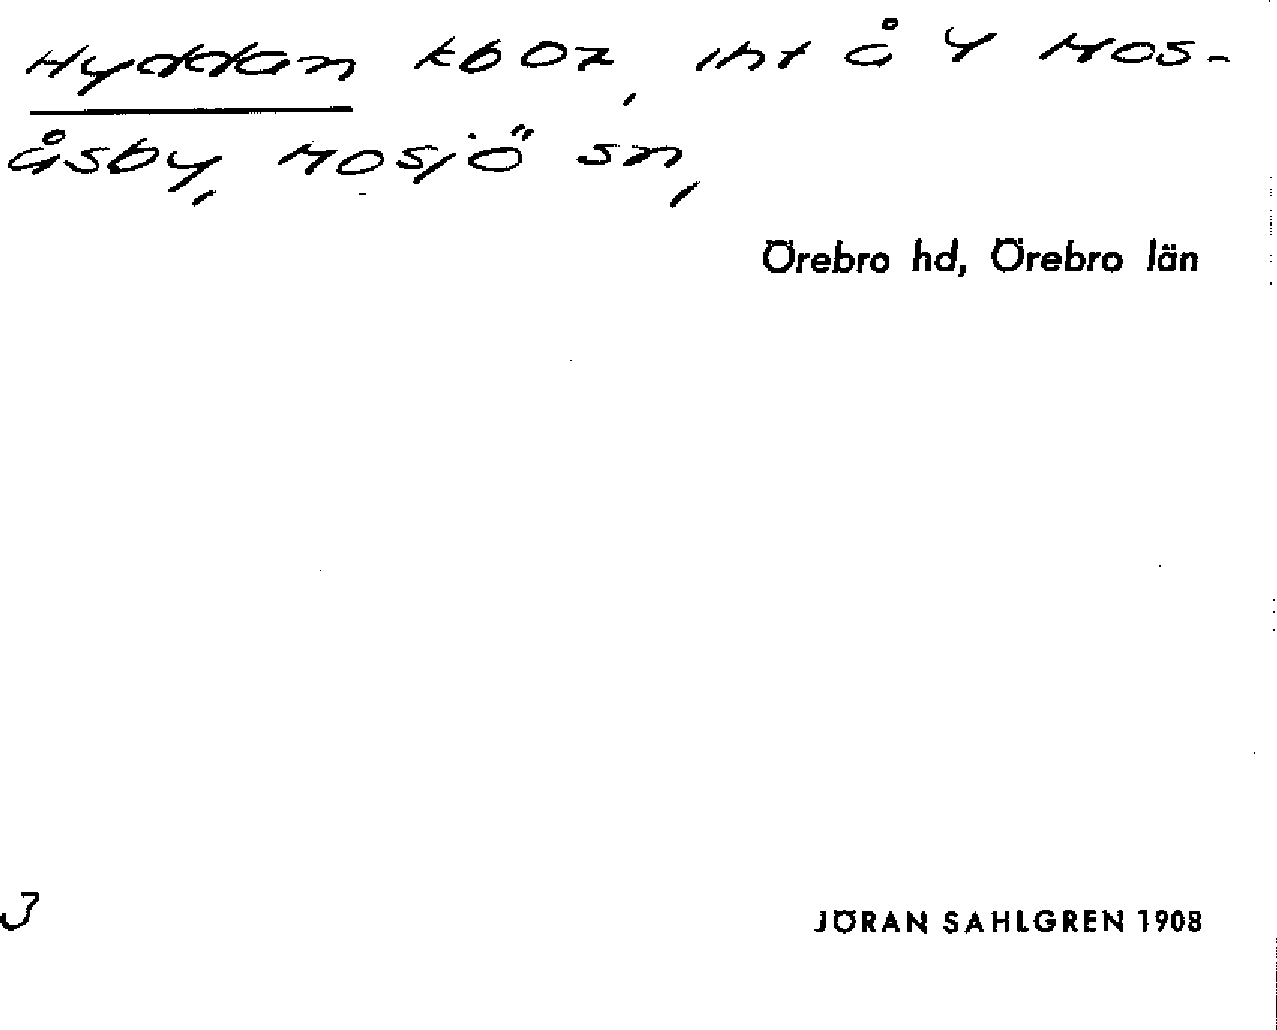 Hyddan kb Oz, iht å 4 Mos-
åsby, Mosjö sn,
Örebro hd, Örebro län
J
JÖRAN SAHLGREN 1908